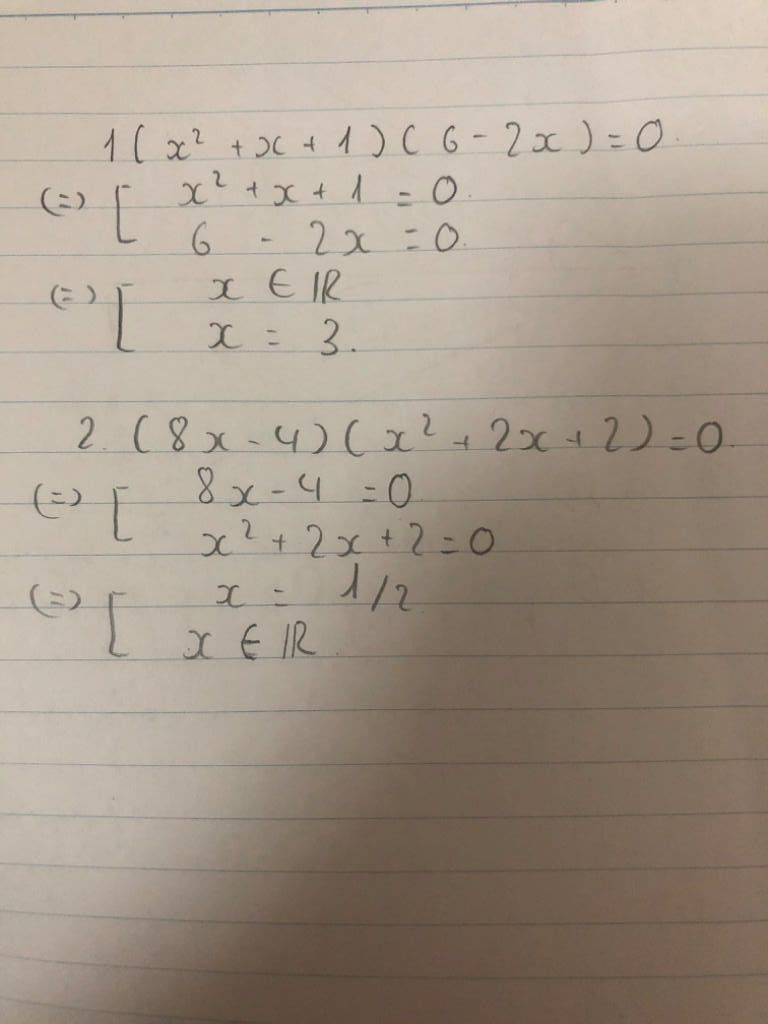 1 ( x² + x + 1 ) ( 6 - 2x ) = 0.
(=) [ x² + x + 1 = 0.
6 - 2x = 0.
(=) [ x ∈ ℝ
x = 3.
2. ( 8x - 4 ) ( x² + 2x + 2 ) = 0.
(=) [ 8x - 4 = 0
x² + 2x + 2 = 0
(=) [ x = 1/2
x ∈ ℝ.